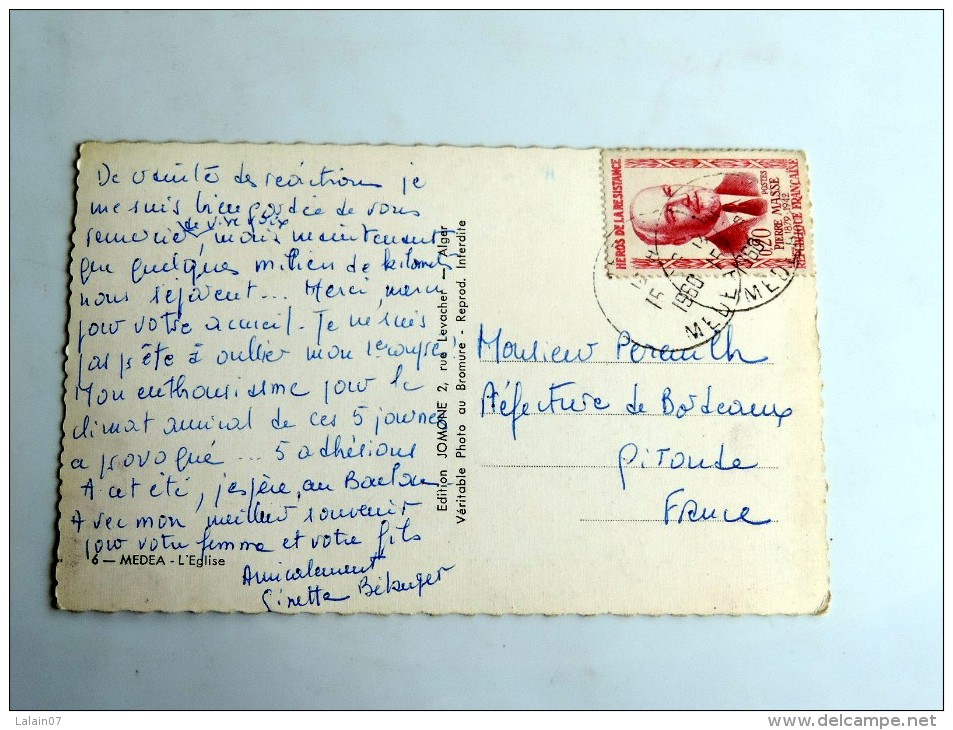 De crainte des réactions je
me suis bien gardée de vous
remercier de vive voix, mais maintenant
que quelques milliers de kilomè
nous séparent... Merci, merci
pour votre accueil. Je ne suis
pas prête à oublier mon 1er congrès!
Mon enthousiasme pour le
climat amical de ces 5 journées
a provoqué... 5 adhésions
A cet été, j'espère, au
Avec mon meilleur souvenir
pour votre femme et votre fils
Amicalement
Ginette
6 — MEDEA - L'Eglise
Edition JOMONE 2, rue Levacher — Alger
Véritable Photo au Bromure - Reprod. Interdite
HEROS DE LA RESISTANCE
0,20
POSTES
PIERRE MASSE
1879 1942
REPUBLIQUE FRANÇAISE
15
1960
MEDEA
1960
MEDEA
Monsieur
Préfecture de Bordeaux
Gironde
France
Lalain07
http://www.delcampe.net